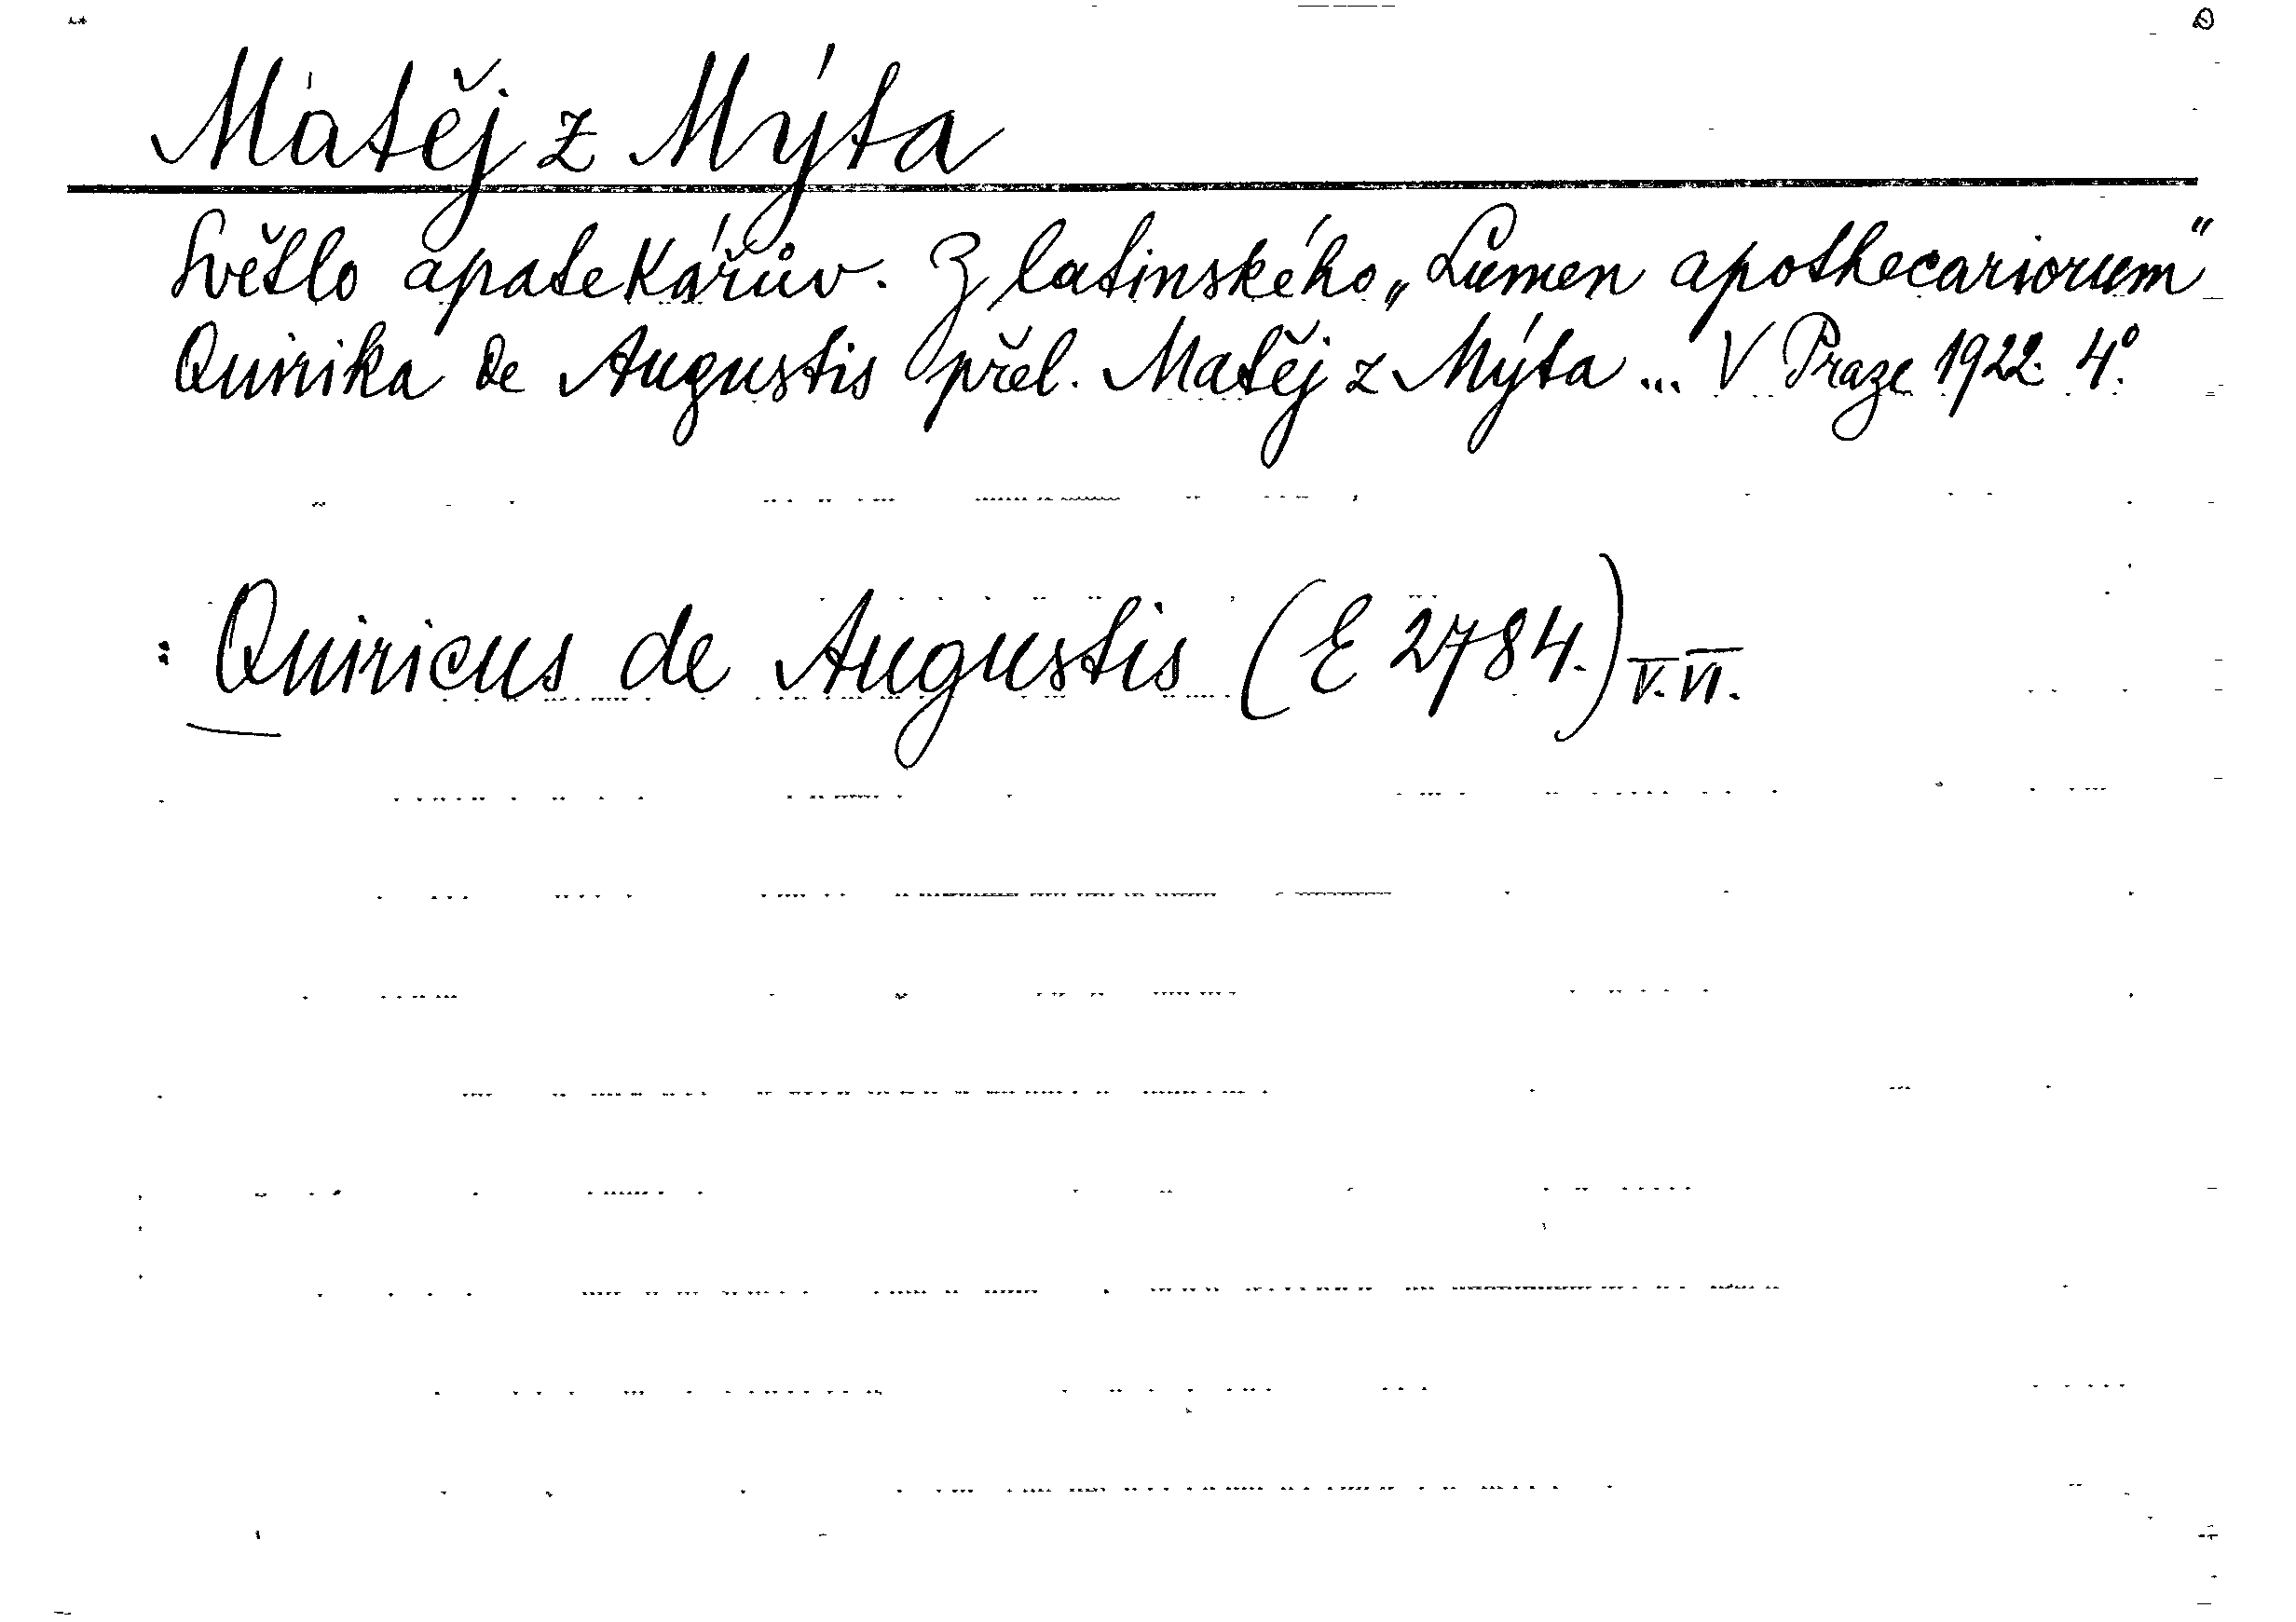 Matěj z Mýta
Světlo apatekářův. Z latinského „Lumen apothecariorum"
Quirika de Augustis přel. Matěj z Mýta ... V Praze 1922. 4°.
: Quiricus de Augustis (E 2784.) V. VI.